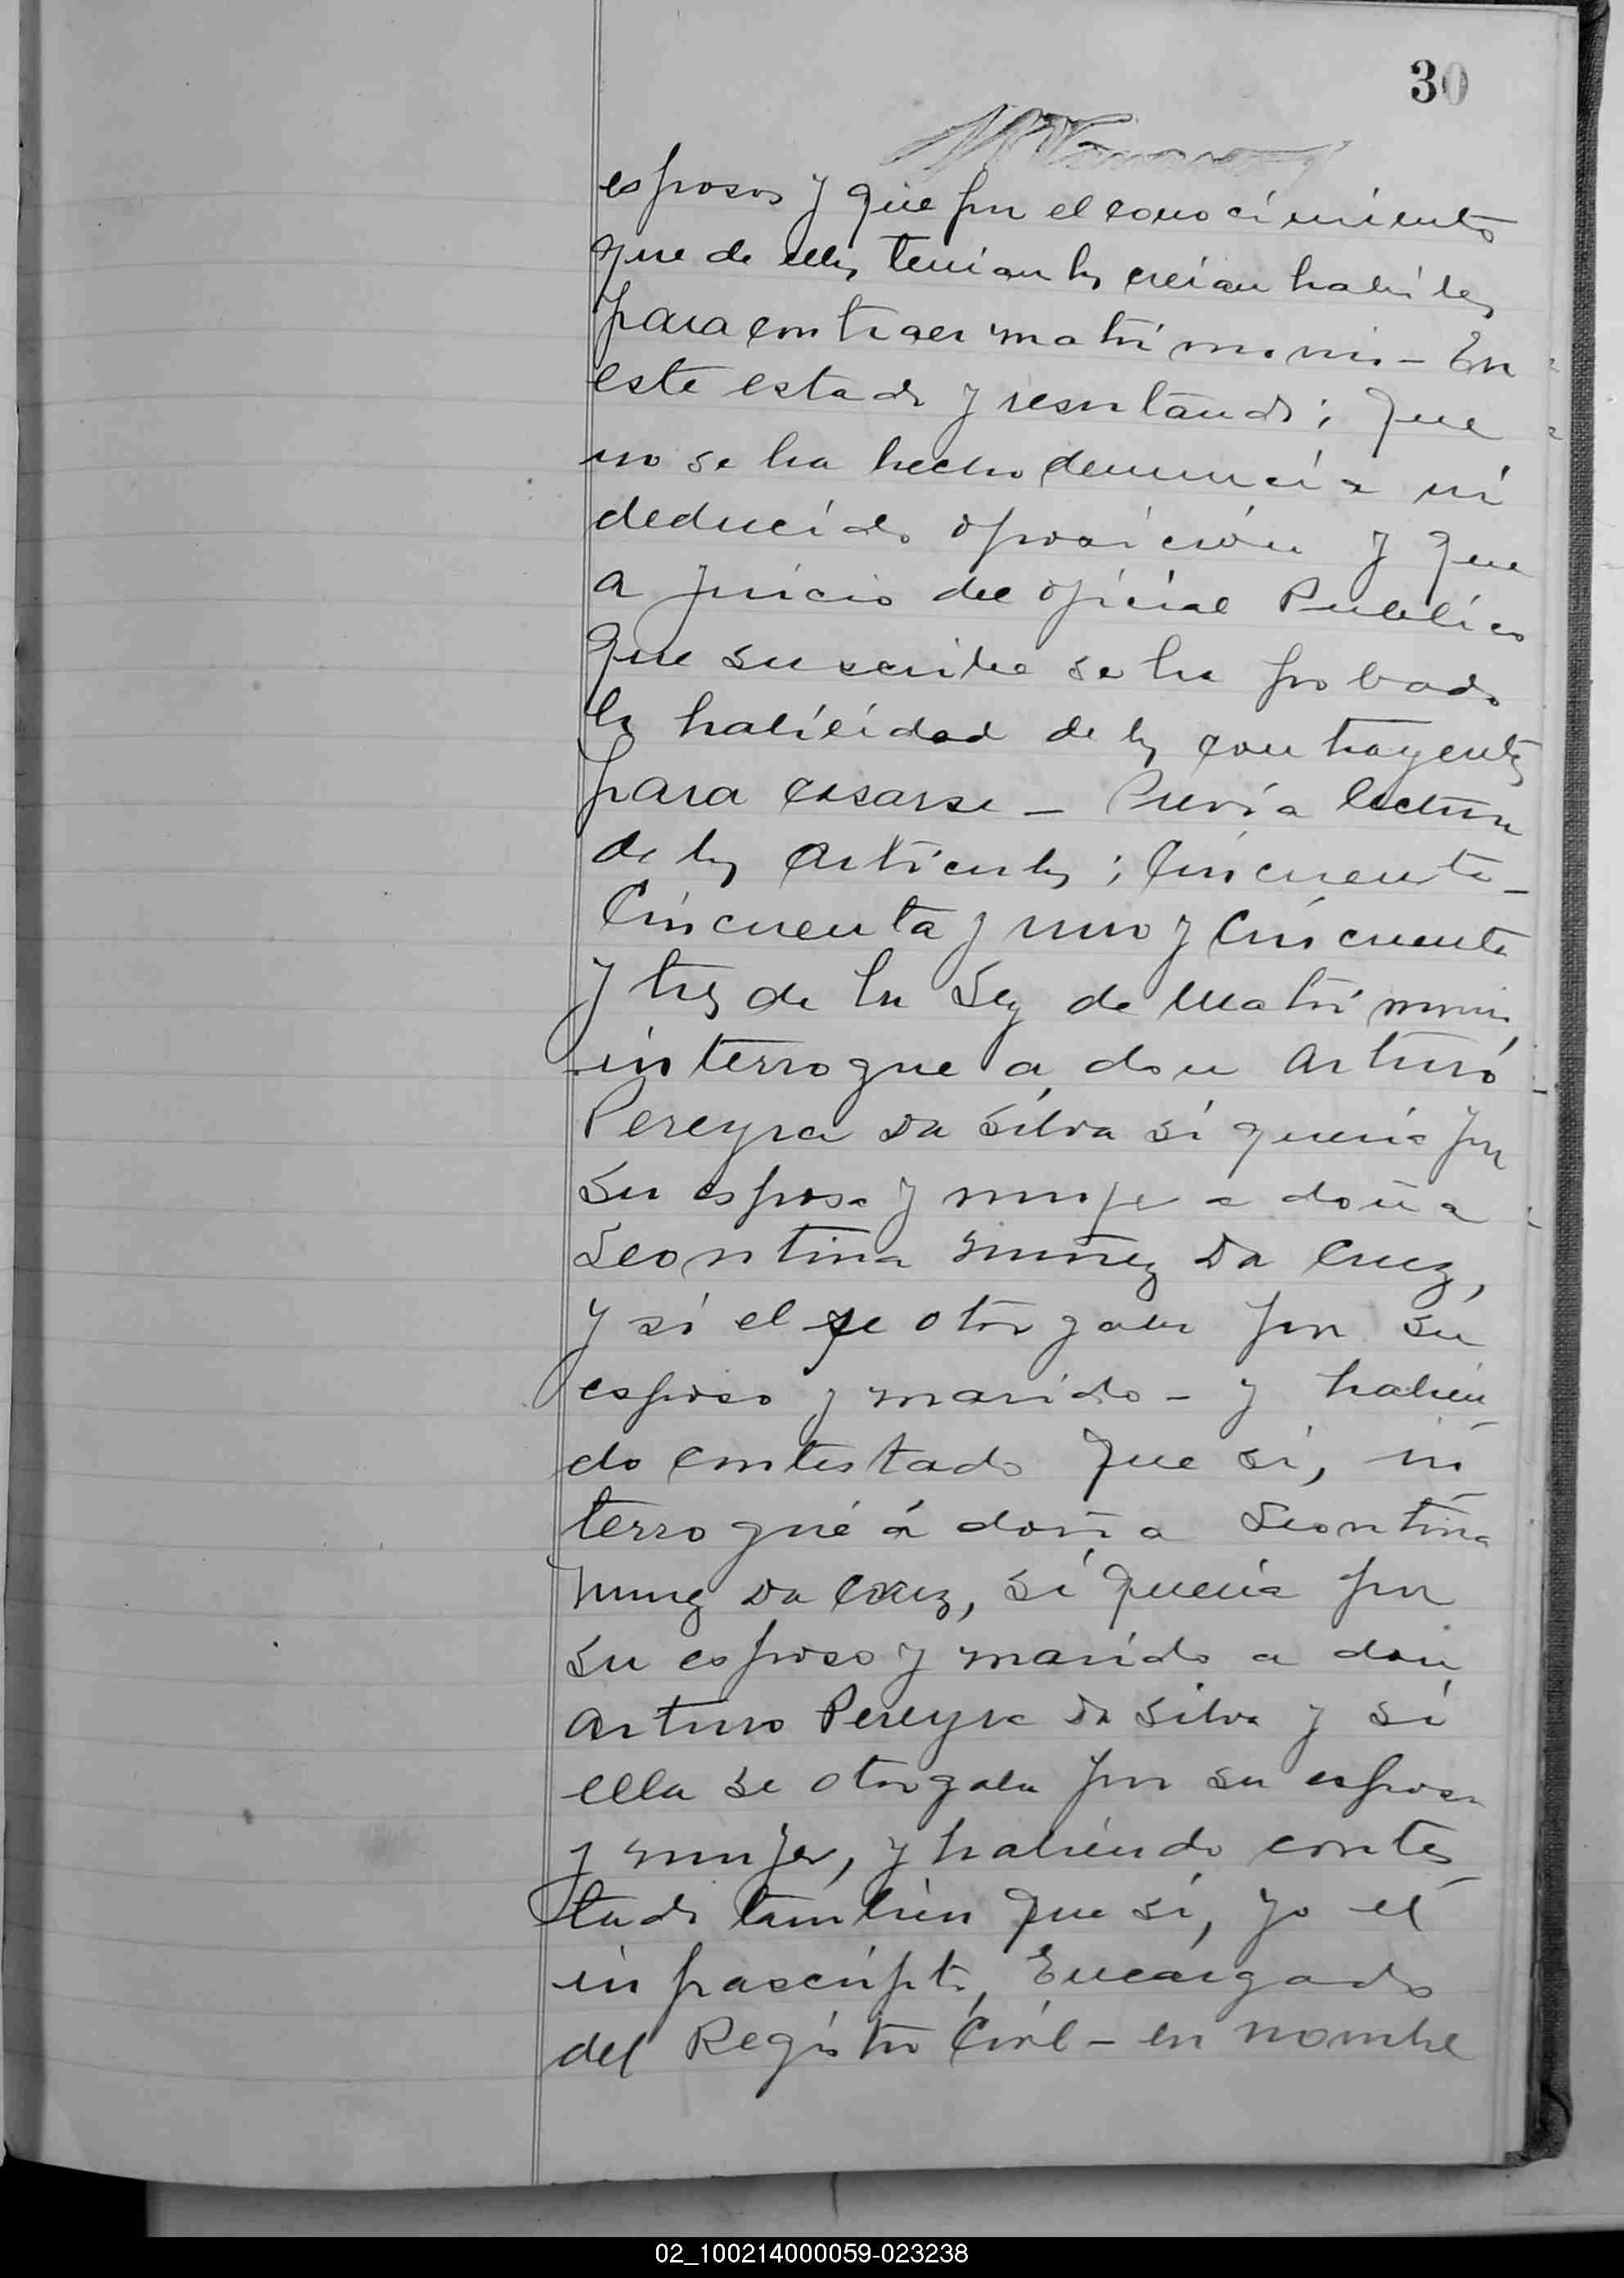 30
esposos y que por el conocimiento
que de ellos tenian los creian habiles
para contraer matrimonio – En
este estado y resultando; que
no se ha hecho denuncia ni
deducido oposición y que
a juicio del oficial Publico
que suscribe se ha probado
la habilidad de los contrayentes
para casarse – Previa lectura
de los articulos; Cincuenta –
Cincuenta y uno y Cincuenta
y tres de la Ley de Matrimonio,
interrogue a don Arturo
Pereyra Da Silva si queria por
su esposa y mujer a doña
Leontina Nuñez Da Cruz,
y si el se otorgaba por su
esposo y marido – y habien
do contestado que si, in
terrogué á doña Leontina
Nunez Da Cruz, si queria por
su esposo y marido a don
Arturo Pereyra Da Silva y si
ella se otorgaba por su esposa
y mujer, y habiendo contes
tado tambien que si, yo el
infrascripto, Encargado
del Registro Civil – en nombre
02_100214000059-023238